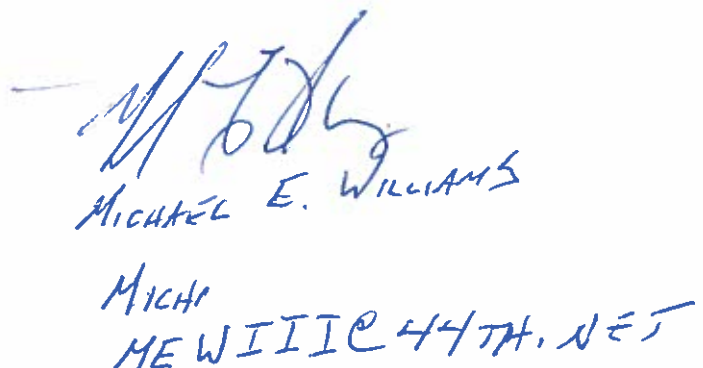 MICHAEL E. WILLIAMS
MICHI
MEWIII@44TH.NET